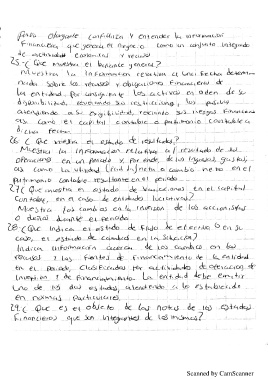 obligante clasificar y entender la información
financiera, que genera el negocio como un conjunto integrado
de actividades economicas y recursos
25.- ¿Que muestra el balance general?
Muestra la información relativa a una fecha determi-
nada sobre los recursos y obligaciones financieros de
la entidad, por consiguiente los activos en orden de su
disponibilidad, revelando sus restricciones, los pasivos
atendiendo a su exigibilidad, revelando sus riesgos financie-
ros, como el capital contable o patrimonio contable a
dicha fecha
26. ¿Que muestra el estado de resultados?
Muestra la información relativa al resultado de sus
operaciones en un periodo y, por ende, de los ingresos, gastos,
así como la utilidad (perdida) neta o cambio neto en el
patrimonio contable resultante en el periodo.
27. ¿Que muestra el estado de variaciones en el capital
contable, en el caso de entidades lucrativas?
Muestra los cambios en la inversión de los accionistas
o dueños durante el periodo
28. ¿Que indica el estado de flujo de efectivo o en su
caso, el estado de cambios en la situación?
Indica información acerca de los cambios en los
recursos y las fuentes de financiamiento de la entidad
en el periodo, clasificados por actividades de operación, de
inversión y de financiamiento. La entidad debe emitir
uno de los dos estados, atendiendo a lo establecido
en normas particulares.
29. ¿Que es el objeto de las notas de los estados
financieros que son integrantes de los mismos?
Scanned by CamScanner